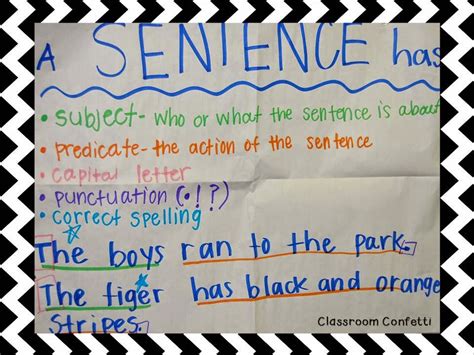 A SENTENCE has
• subject- who or what the sentence is about
• predicate- the action of the sentence
• capital letter
• punctuation (. ! ?)
• correct spelling
The boys ran to the park.
The tiger has black and orange
stripes.
Classroom Confetti